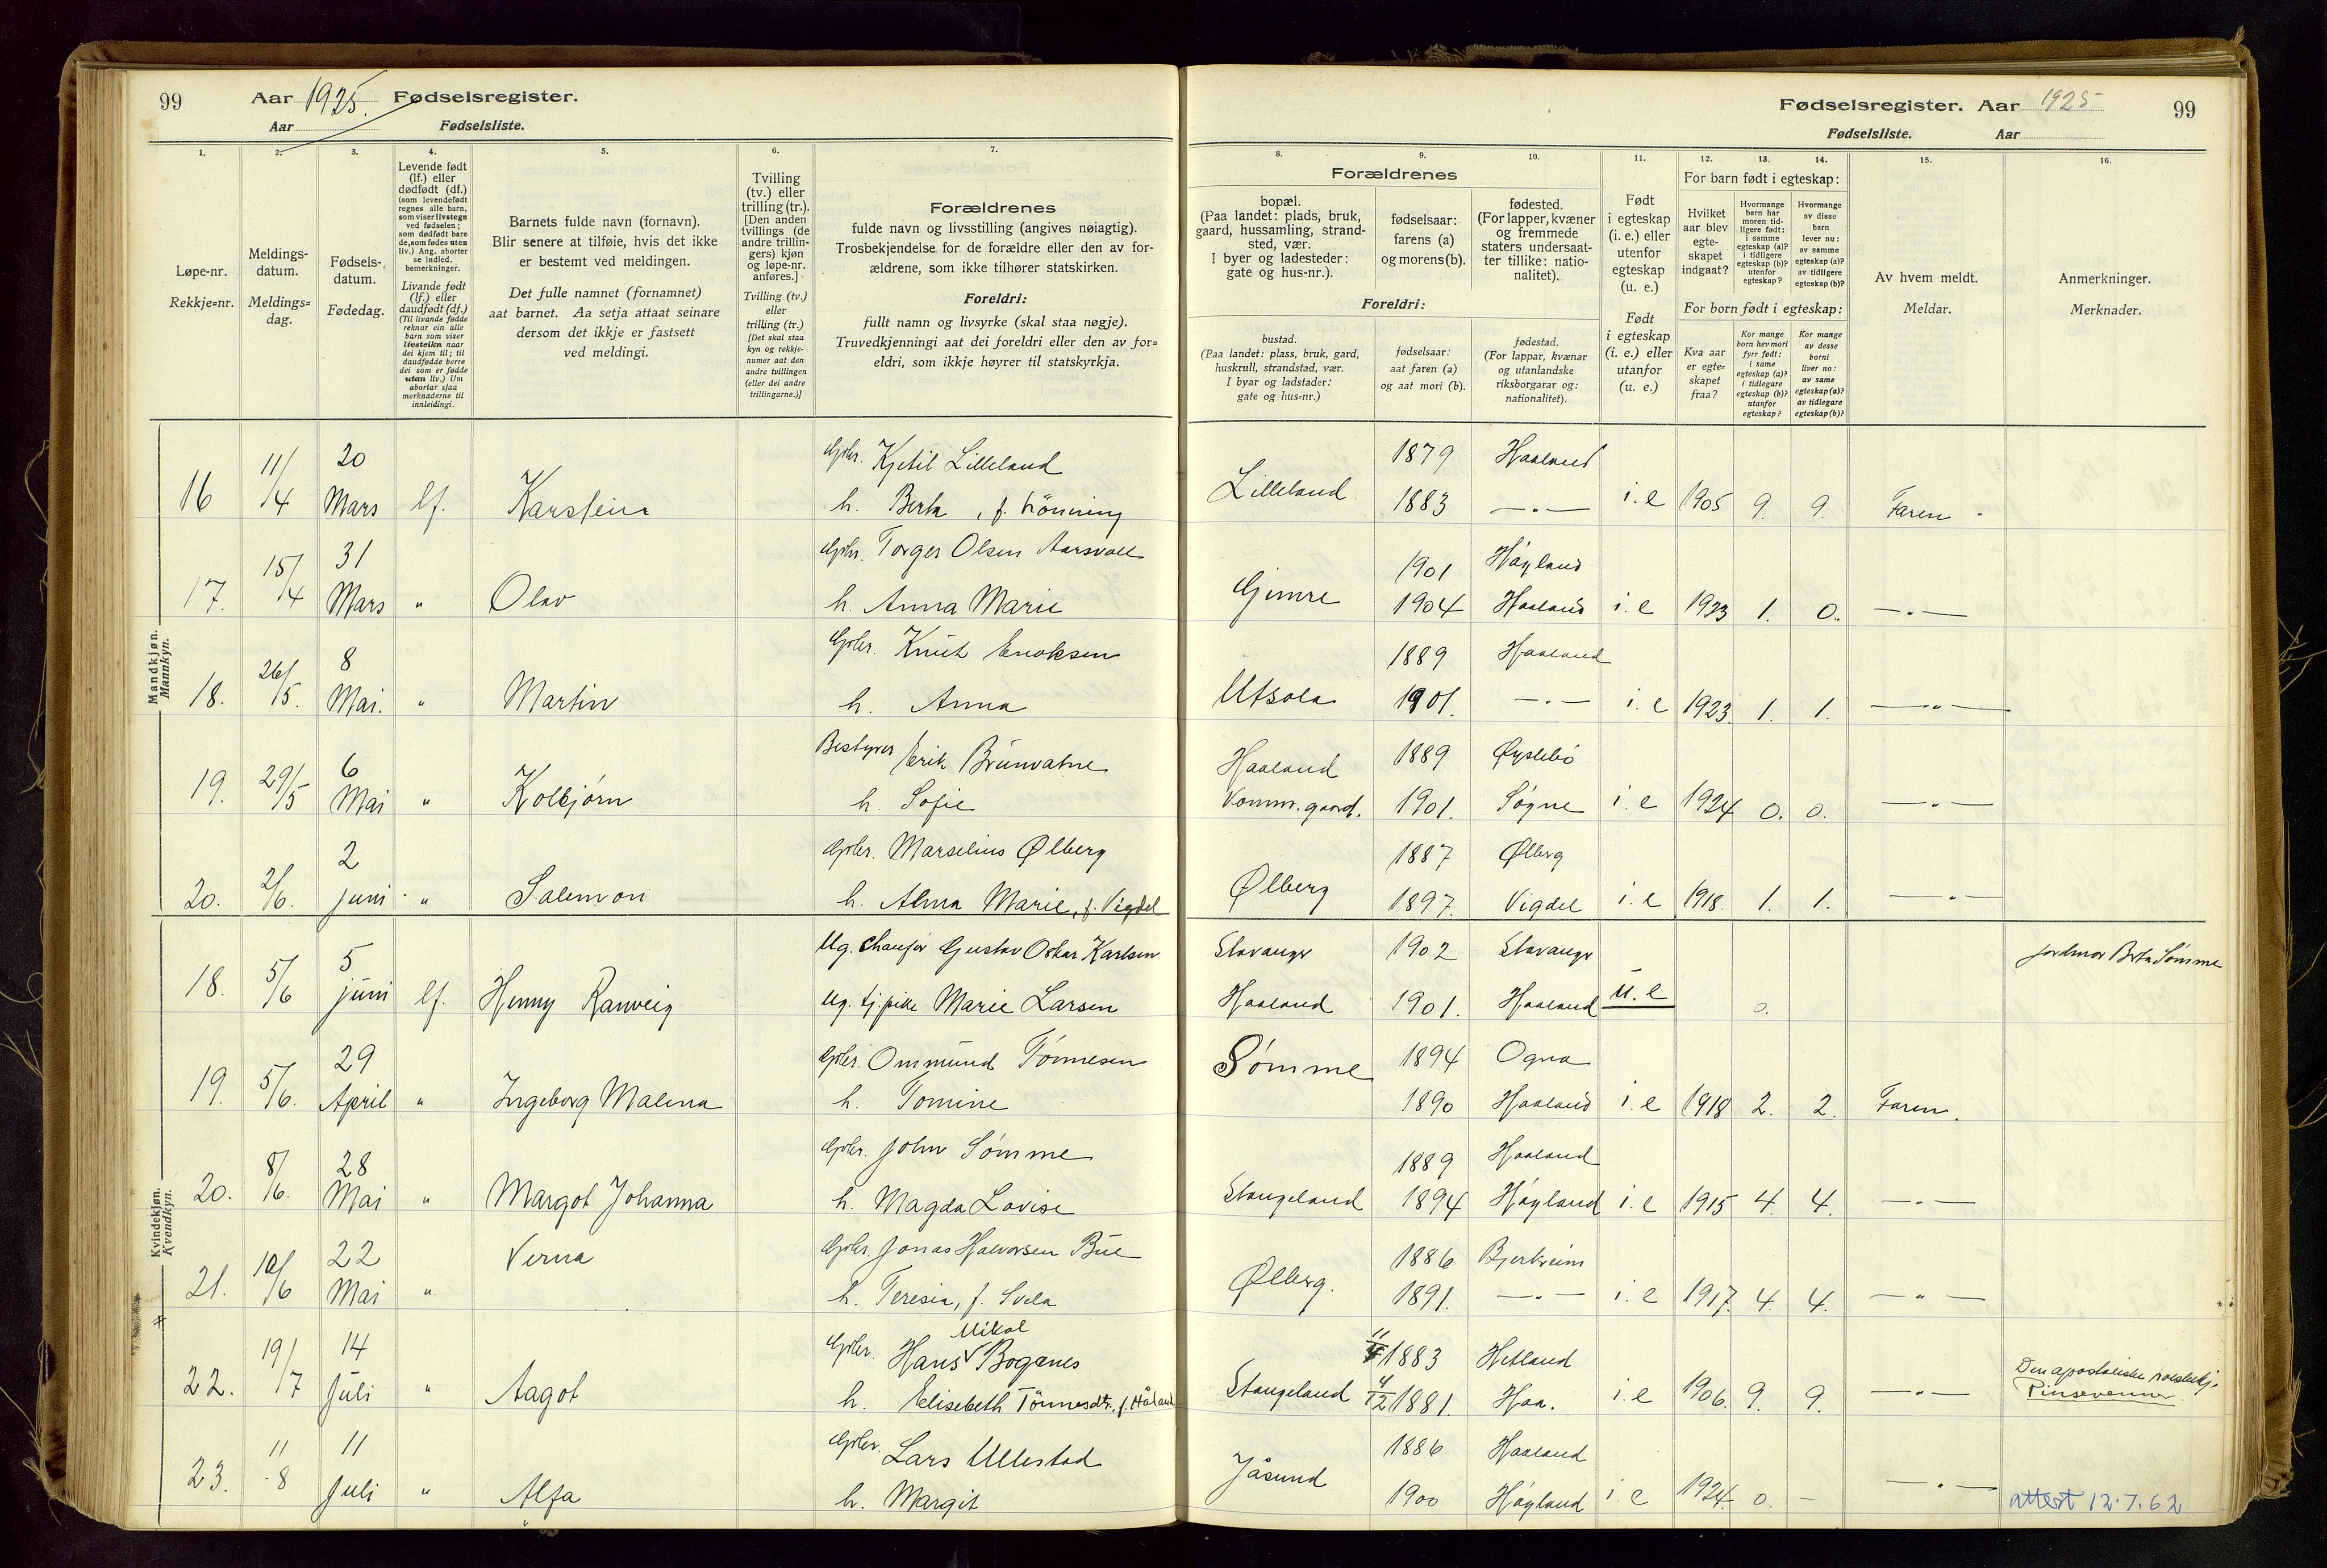 99
Aar 1925. Fødselsregister.
Aar
Fødselsliste.
1.
Løpe-nr.
Rekkje=nr.
2.
Meldings-
datum.
Meldings=
dag.
3.
Fødsels-
datum.
Fødedag.
4.
Levende født
(lf.) eller
dødfødt (df.)
(som levendefødt
regnes alle barn,
som viser livstegn
ved fødselen;
som dødfødt bare
de, som fødes uten
liv.) Ang. aborter
se indled.
bemerkninger.
Livande født
(lf.) eller
daudfødt (df.)
(Til livande fødde
reknar ein alle
barn som viser
livsteikn naar
dei kjem til; til
daudfødde berre
dei som er fødde
utan liv.) Um
abortar sjaa
merknaderne til
innleidingi.
5.
Barnets fulde navn (fornavn).
Blir senere at tilføie, hvis det ikke
er bestemt ved meldingen.
Det fulle namnet (fornamnet)
aat barnet. Aa setja attaat seinare
dersom det ikkje er fastsett
ved meldingi.
6.
Tvilling
(tv.) eller
trilling (tr.).
[Den anden
tvillings (de
andre trillin-
gers) kjøn
og løpe-nr.
anføres.]
Tvilling (tv.)
eller
trilling (tr.)
[Det skal staa
kyn og rekkje-
numer aat den
andre tvillingen
(eller dei andre
trillingarne.)]
7.
Forældrenes
fulde navn og livsstilling (angives nøiagtig).
Trosbekjendelse for de forældre eller den av for-
ældrene, som ikke tilhører statskirken.
Foreldri:
fullt namn og livsyrke (skal staa nøgje).
Truvedkjenningi aat dei foreldri eller den av for=
eldri, som ikkje høyrer til statskyrkja.
Mandkjøn.
Mannkyn.
16 11/4 20 Mars lf. Karstein Gbr. Kjetil Lilleland
h. Berta , f. Hönning
17. 15/4 31 Mars " Olav Gbr. Torger Olsen Aarsvoll
h. Anna Marie
18. 26/5. 8 Mai. " Martin Gbr. Knut Enoksen
h. Anna
19. 29/5 6 Mai " Kolbjørn Bestyrer Erik Brunvatne
h. Sofie
20. 2/6. 2 juni " Salemon Gbr. Marselius Ølberg
h. Alma Marie, f. Vigdel
Kvindekjøn.
Kvendkyn.
18. 5/6 5 juni lf. Henny Ranveig Ug. chauför Gustav Oskar Karlsen
Ug. tj.pike Marie Larsen
19. 5/6. 29 April " Ingeborg Malena Gbr. Ommund Tönnesen
h. Tomine
20. 8/6. 28 Mai " Margot Johanna Gbr. John Sømme
h. Magda Lovise
21. 10/6 22 Mai " Verna Gbr. Jonas Halvorsen Bue
h. Teresia, f. Svela
22. 19/7 14 Juli " Aagot Gbr. Hans Mikal Boganes
h. Elisebeth Tönnesdtr., f. Håland
23. 11 8 11 Juli " Alfa Gbr. Lars Ullestad
h. Margit
Fødselsregister. Aar 1925
99
Fødselsliste.
Aar
8.
Forældrenes
bopæl.
(Paa landet: plads, bruk,
gaard, hussamling, strand-
sted, vær.
I byer og ladesteder:
gate og hus-nr.).
Foreldri:
bustad.
(Paa landet: plass, bruk, gard,
huskrull, strandstad, vær.
I byar og ladstader:
gate og hus=nr.)
9.
fødselsaar:
farens (a)
og morens (b).
fødselsaar:
aat faren (a)
og aat mori (b).
10.
fødested.
(For lapper, kvæner
og fremmede
staters undersaat-
ter tillike: natio-
nalitet).
fødestad.
(For lappar, kvænar
og utanlandske
riksborgarar og:
nationalitet).
11.
Født
i egteskap
(i. e.) eller
utenfor
egteskap
(u. e.)
Født
i egteskap
(i. e.) eller
utanfor
(u. e.)
12. 13. 14.
For barn født i egteskap:
Hvilket
aar blev
egte-
skapet
indgaat?
Hvormange
barn har
moren tid-
ligere født:
i samme
egteskap (a)?
i tidligere
egteskap (b)?
utenfor
egteskap?
Hvormange
av disse
barn
lever nu:
av samme
egteskap (a)?
av tidligere
egteskap (b)?
For born født i egteskap:
Kva aar
er egte=
skapet
fraa?
Kor mange
born hev mori
fyrr født:
i same
egteskap (a)?
i tidlegare
egteskap (b)?
utanfor
egteskap?
Kor mange
av desse
borni
liver no:
av same
egteskap (a)?
av tidlegare
egteskap (b)?
15.
Av hvem meldt.
Meldar.
16.
Anmerkninger.
Merknader.
Lilleland 1879 Haaland
1883 —"— i.e 1905 9. 9. Faren
Gimre 1901 Høyland
1904 Haaland i.e 1923 1. 0. —"—
Utsola 1889 Haaland
1901. —"— i.e 1923. 1. 1. —"—
Haaland 1889 Øyslebö
Komm.gaard. 1901. Søgne i.e 1924 0. 0. —"—
Ølberg 1887 Ølberg
1897. Vigdel i.e 1918. 1. 1. —"—
Stavanger 1902 Stavanger jordmor Berta Sömme
Haaland 1901. Haaland u.e 0.
Sømme 1894 Ogna
1890 Haaland i.e 1918 2. 2. Faren.
Stangeland 1889 Haaland
1894 Høyland i.e 1915 4. 4. —"—
Ølberg. 1886 Bjerkreim
1891. —"— i.e 1917. 4. 4. —"—
Stangeland 1883 Hetland Den apostoliske
4/12 1881. Haa. i.e 1906. 9. 9. —"— Pinsevenner.
Jåsund 1886 Haaland
1900 Høyland i.e 1924. 0. - —"— attest 12.7.62